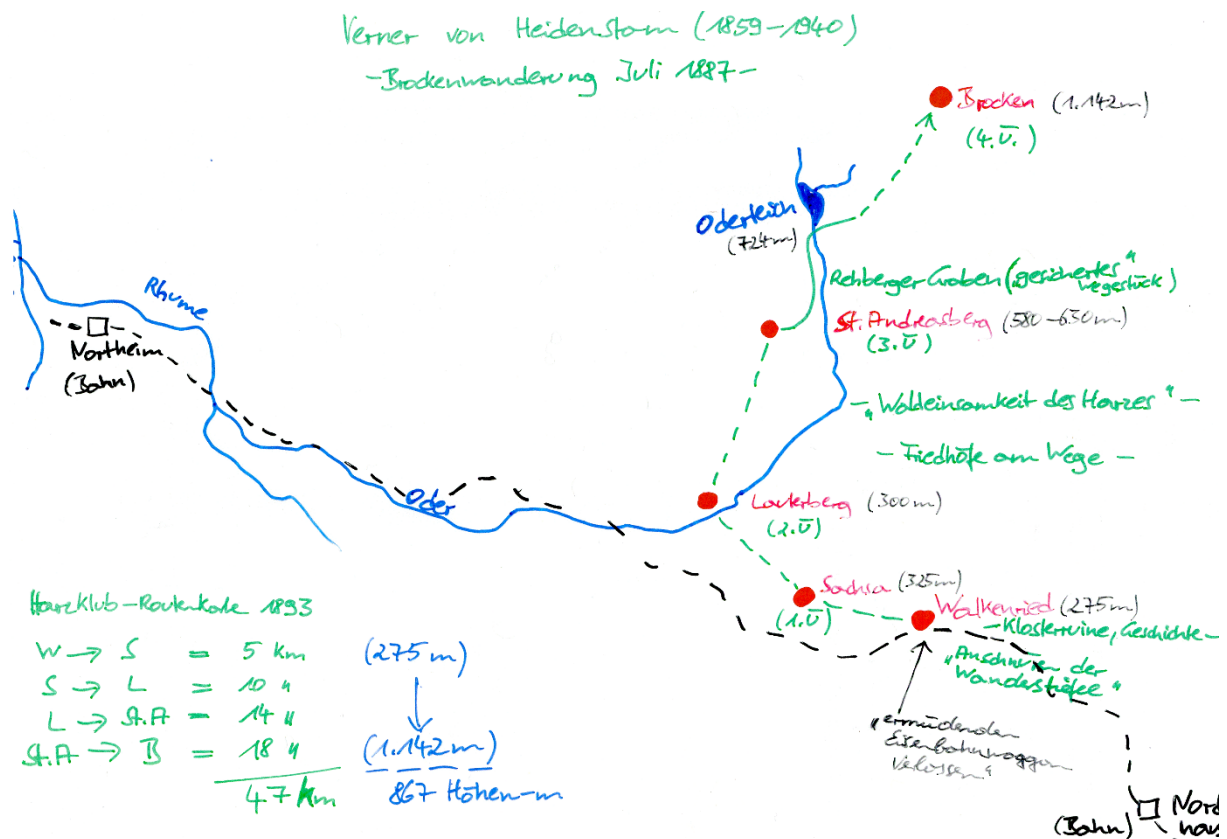 Verner von Heidenstam (1859–1940)
–Brockenwanderung Juli 1887–
Brocken (1.142m)
(4.Ü.)
Oderteich
(724m)
Rehberger Graben („gesichertes“
Wegestück)
Rhume
St. Andreasberg (580–630m)
(3.Ü)
Northeim
(Bahn)
– „Waldeinsamkeit des Harzes“ –
– Friedhöfe am Wege –
Oder
Lauterberg (300m)
(2.Ü)
Sachsa (325m)
(1.Ü)
Walkenried (275m)
–Klosterruine, Geschichte–
„Anschnüren der
Wanderstiefel“
„ermüdenden
Eisenbahnwaggon
verlassen“
Harzklub–Routenkarte 1893
W → S = 5 km (275m)
S → L = 10 "
L → St.A = 14 "
St.A → B = 18 " (1.142m)
47 km 867 Höhen-m
(Bahn)
Nord
hau